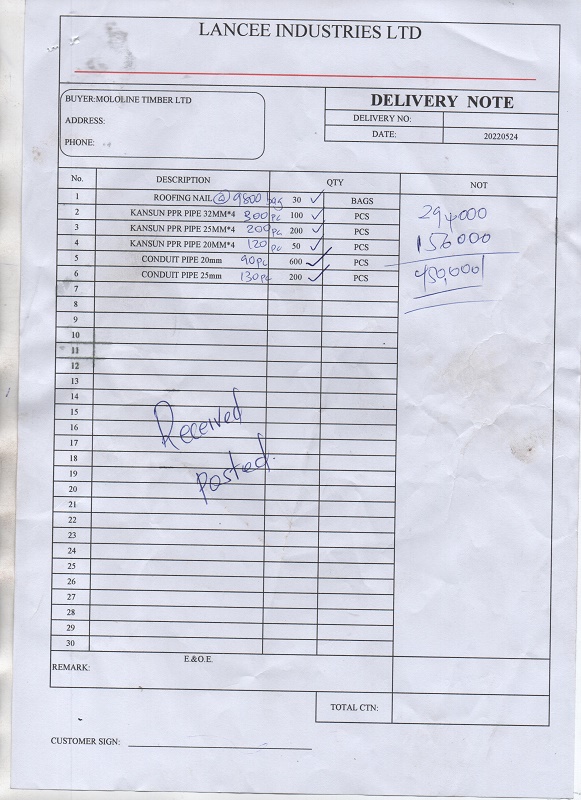 LANCEE INDUSTRIES LTD
BUYER:MOLOLINE TIMBER LTD
ADDRESS:
PHONE:
DELIVERY NOTE
DELIVERY NO:
DATE: 20220524
No. DESCRIPTION QTY NOT
1 ROOFING NAIL @ 9800 bag 30 ✓ BAGS
2 KANSUN PPR PIPE 32MM*4 300 pc 100 ✓ PCS
3 KANSUN PPR PIPE 25MM*4 200 pc 200 ✓ PCS
4 KANSUN PPR PIPE 20MM*4 120 pc 50 ✓ PCS
5 CONDUIT PIPE 20mm 90 pc 600 ✓ PCS
6 CONDUIT PIPE 25mm 130 pc 200 ✓ PCS
294000
156000
450,000
7
8
9
10
11
12
13
14
15
16
17
18
19
20
21
22
23
24
25
26
27
28
29
30
Received
Posted.
E.&O.E.
REMARK:
TOTAL CTN:
CUSTOMER SIGN: